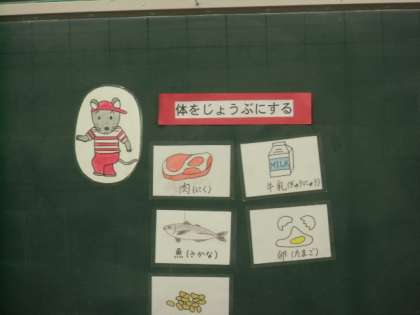 体をじょうぶにする
肉(にく)
MILK
牛乳(ぎゅうにゅう)
魚(さかな)
卵(たまご)